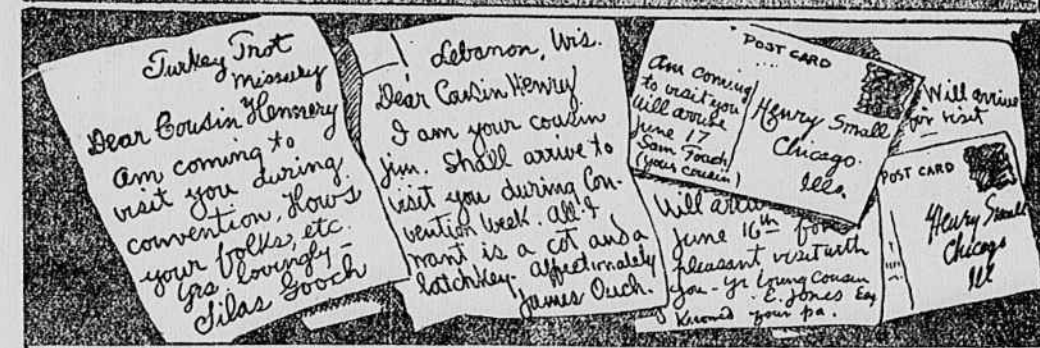 Turkey Trot
Missury
Dear Cousin Hennery
Am coming to
visit you during
convention, How's
your folks, etc.
Yrs lovingly -
Silas Gooch
Lebanon, Wis.
Dear Cousin Henry
I am your cousin
Jim. Shall arrive to
visit you during Con-
vention week. All I
want is a cot and a
latchkey. Affectionately
James Ouch.
POST CARD
Am coming
to visit you
Will arrive
June 17
Sam Toach
(your cousin)
Henry Small
Chicago.
Ills.
Will arrive
for visit
Will arrive
June 16th for
pleasant visit with
you - yr loving cousin
E. Jones Esq
Knowed your pa.
POST CARD
Henry Small
Chicago
Ill